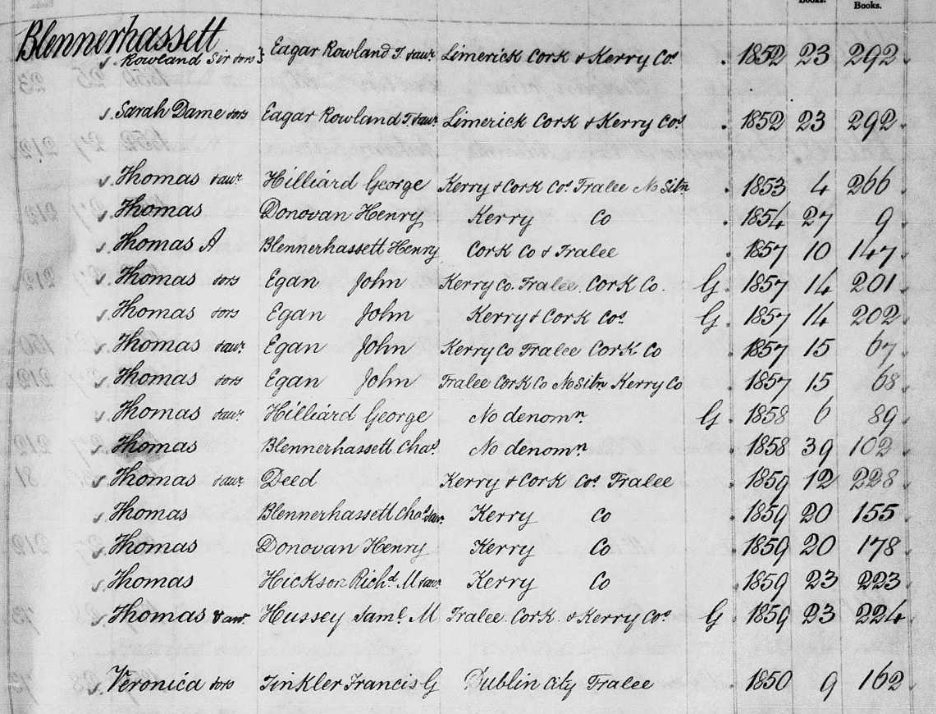 Books. Books.
Blennerhassett
Rowland Sir &ors } Eagar Rowland T. &aur Limerick Cork & Kerry Cos . 1852 23 292.
Sarah Dame &ors Eagar Rowland T. &aur Limerick Cork & Kerry Cos . 1852 23 292.
Thomas &aur Hilliard George Kerry & Cork Cos Tralee No Sitn . 1853 4 266.
Thomas Donovan Henry Kerry Co . 1854 27 9.
Thomas A Blennerhassett Henry Cork Co & Tralee . 1857 10 147.
Thomas &ors Egan John Kerry Co. Tralee. Cork Co. G. 1857 14 201.
Thomas &ors Egan John Kerry & Cork Cos G. 1857 14 202.
Thomas &aur Egan John Kerry Co Tralee Cork Co . 1857 15 67.
Thomas &ors Egan John Tralee Cork Co No Sitn Kerry Co . 1857 15 68.
Thomas &aur Hilliard George No denomn G. 1858 6 89.
Thomas Blennerhassett Chas. No denomn . 1858 39 102.
Thomas &aur Deed Kerry & Cork Cos Tralee . 1859 12 228.
Thomas Blennerhassett Chas &aur Kerry Co . 1859 20 155.
Thomas Donovan Henry Kerry Co . 1859 20 178.
Thomas Hickson Richd M &aur Kerry Co . 1859 23 223.
Thomas & aur Hussey Saml. M Tralee. Cork. & Kerry Cos G. 1859 23 224.
Veronica &ors Tinkler Francis G Dublin City Tralee . 1850 9 162.